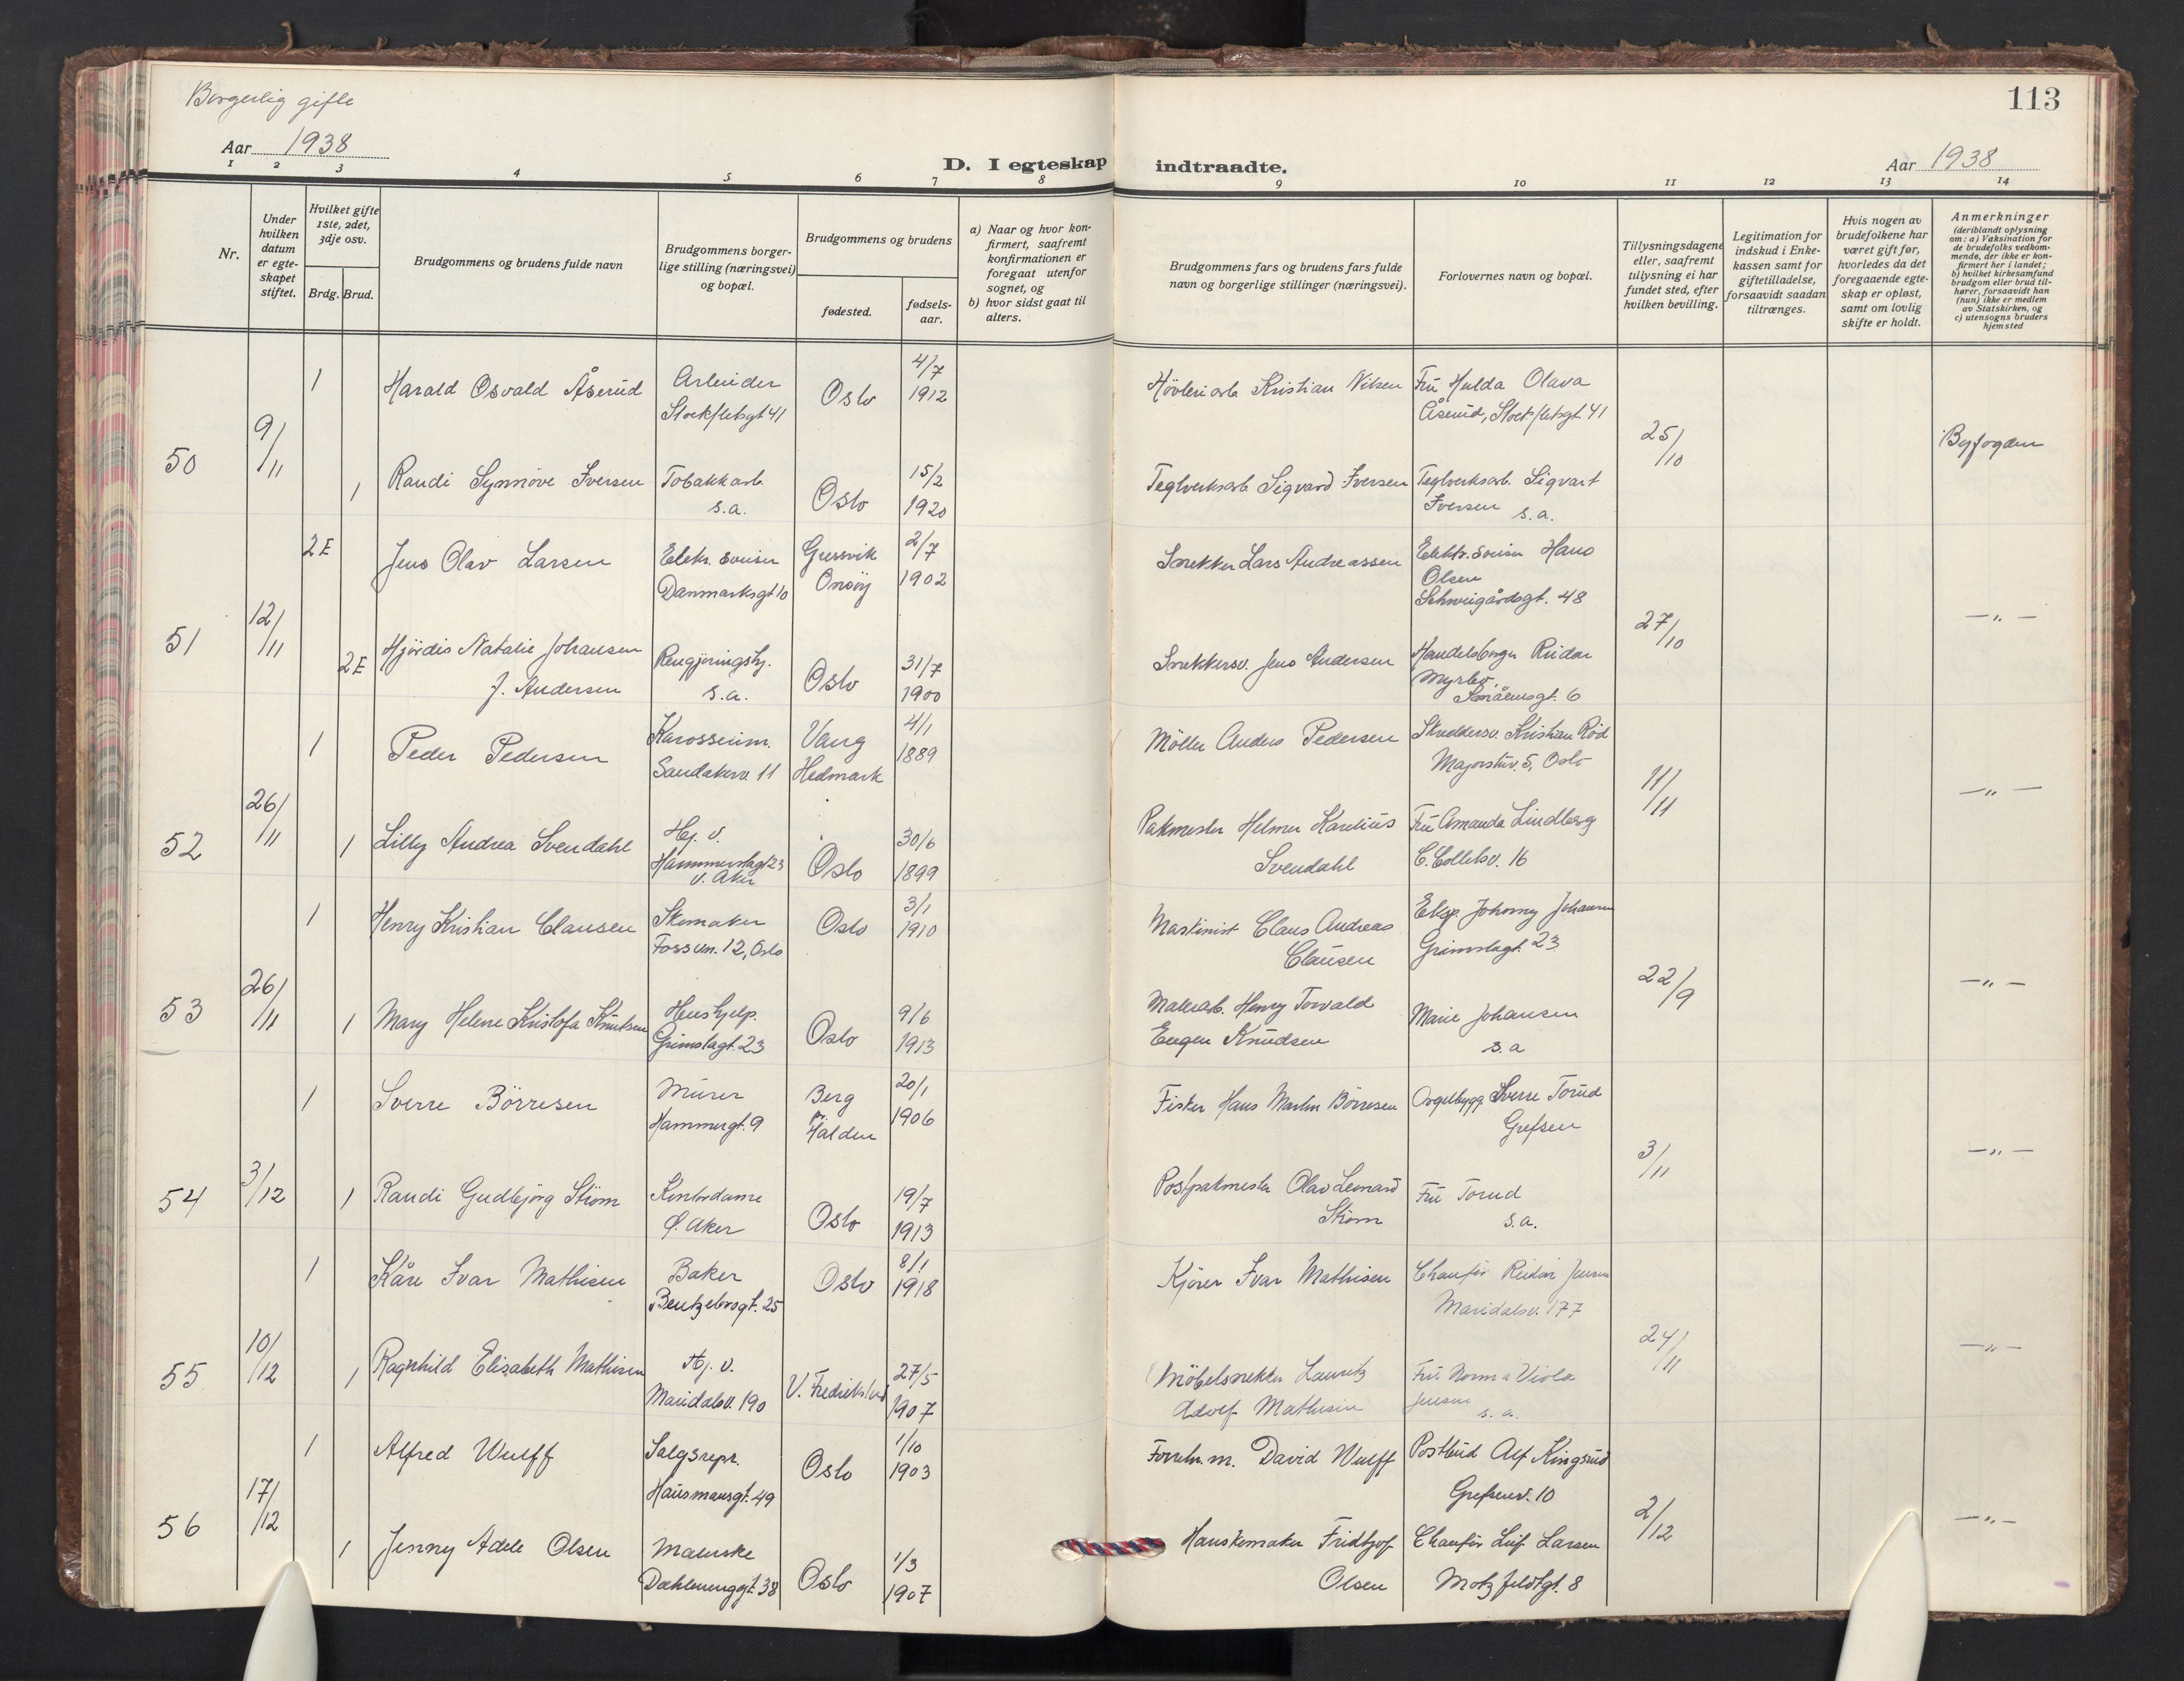 Borgerlig gifte
113
Aar 1938
D. I egteskap indtraadte.
Aar 1938
1 2 3 4 5 6 7 8 9 10 11 12 13 14
Nr.
Under hvilken datum er egteskapet stiftet.
Hvilket gifte 1ste, 2det, 3dje osv.
Brdg. Brud.
Brudgommens og brudens fulde navn
Brudgommens borgerlige stilling (næringsvei) og bopæl.
Brudgommens og brudens
fødested.
fødselsaar.
a) Naar og hvor konfirmert, saafremt konfirmationen er foregaat utenfor sognet, og
b) hvor sidst gaat til alters.
Brudgommens fars og brudens fars fulde navn og borgerlige stillinger (næringsvei).
Forlovernes navn og bopæl.
Tillysningsdagene eller, saafremt tillysning ei har fundet sted, efter hvilken bevilling.
Legitimation for indskud i Enkekassen samt for giftetilladelse, forsaavidt saadan tiltrænges.
Hvis nogen av brudefolkene har været gift før, hvorledes da det foregaaende egteskap er opløst, samt om lovlig skifte er holdt.
Anmerkninger
(deriblandt oplysning om: a) Vaksination for de brudefolks vedkommende, der ikke er konfirmert her i landet; b) hvilket kirkesamfund brudgom eller brud tilhører, forsaavidt han (hun) ikke er medlem av Statskirken, og c) utensogns bruders hjemsted
50 9/11
1 Harald Osvald Åserud Arbeider Stockfletsgt 41 Oslo 4/7 1912 Høvleriarb. Kristian Nilsen Fru Hulda Olava Åserud, Stockfletsgt 41
25/10 Byfogden
1 Randi Synnøve Iversen Tobakkarb. s.a. Oslo 15/2 1920 Teglverksarb. Sigvard Iversen Teglverksarb. Sigvart Iversen s.a.
51 12/11
2E Jens Olav Larsen Elektr. Danmarksgt 10 Gressvik Onsøy 2/7 1902 Snekker Lars Andreassen Elektr. Hans Olsen Schweigårdsgt. 48
27/10 — „ —
2E Hjørdis Natalie Johansen f. Andersen Rengjøringshj. s.a. Oslo 31/7 1900 Snekkersv. Jens Andersen Handelsborger Reidar Myrbo, Smålensgt. 6
52 26/11
1 Peder Pedersen Karosserim. Sandakerv. 11 Vang Hedmark 4/1 1889 Møller Anders Pedersen Skreddersv. Kristian Rød Majorstuv. 5, Oslo
11/11 — „ —
1 Lilly Andrea Svendahl Hj. v. Hammerstagt 23 V. Aker Oslo 30/6 1899 Pakmester Helmer Karelius Svendahl Fru Amanda Lindberg C. Colletsv. 16
53 26/11
1 Henry Kristian Clausen Skomaker Fossvn. 12, Oslo Oslo 3/1 1910 Maskinist Claus Andreas Clausen Johnny Johansen Grimstagt. 23
22/9 — „ —
1 Mary Helene Kristofa Knutsen Hushjelp. Grimstagt. 23 Oslo 9/6 1913 Malerarb. Henry Torvald Eugen Knudsen Marie Johansen s.a
54 3/12
1 Sverre Børresen Murer Hammergt. 9 Berg pr. Halden 20/1 1906 Fisker Hans Martin Børresen Orgelbygg. Sverre Torud Grefsen
3/11 — „ —
1 Randi Gudbjørg Strøm Kontordame Ø. Aker Oslo 19/7 1913 Postpakmester Olav Leonard Strøm Fru Torud s.a.
55 10/12
1 Kåre Ivar Mathisen Baker Bentzebrogt. 25 Oslo 8/1 1918 Kjører Ivar Mathisen Chauffør Reidar Jensen Maridalsv. 177
24/11 — „ —
1 Ragnhild Elisabeth Mathisen Hj. v. Maridalsv. 190 V. Fredrikstad 27/5 1907 Møbelsnekker Lauritz Adolf Mathisen Fru Norma Viola Jensen s.a.
56 17/12
1 Alfred Wulff Salgsrepr. Hausmansgt. 49 Oslo 1/10 1903 Forretn.m. David Wulff Postbud Alf Kingsrud Grefsenv. 10
2/12 — „ —
1 Jenny Adele Olsen Malerske Dæhlenenggt. 38 Oslo 1/3 1907 Hanskemaker Fridtjof Olsen Chauffør Leif Larsen Motzfeldtgt. 8